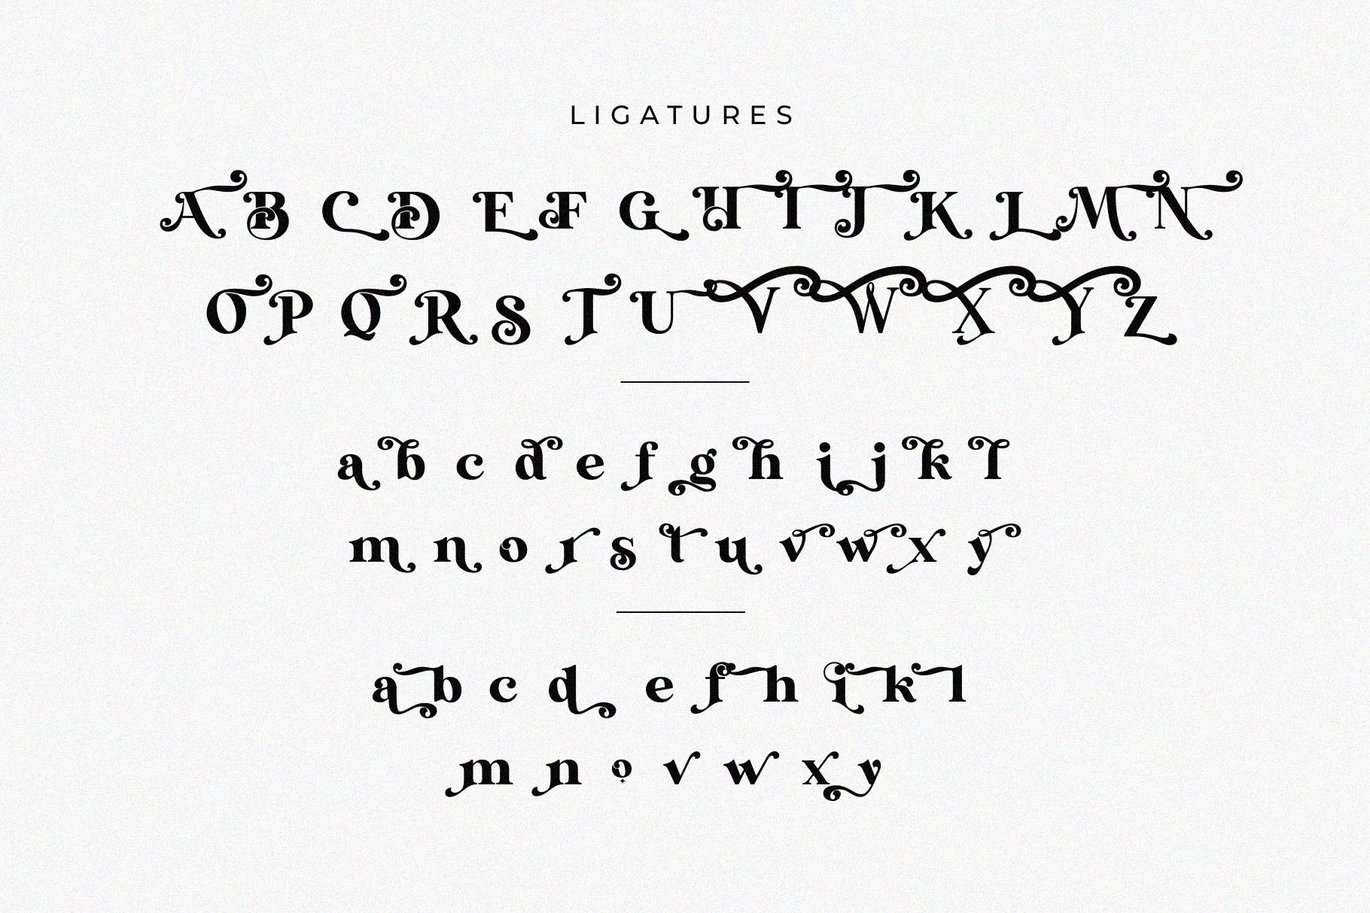 LIGATURES
A B C D E F G H I J K L M N
O P Q R S T U V W X Y Z
a b c d e f g h i j k l
m n o r s t u v w x y
a b c d e f h i k l
m n o v w x y